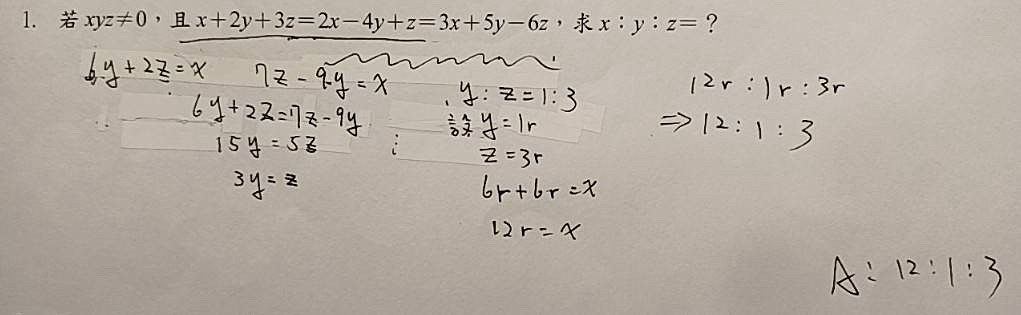 1. 若 xyz≠0，且 x+2y+3z=2x-4y+z=3x+5y-6z，求 x：y：z=？
6y+2z=x
7z-9y=x
6y+2z=7z-9y
15y=5z
3y=z
y:z=1:3
設 y=1r
z=3r
6r+6r=x
12r=x
12r:1r:3r
⇒12:1:3
A:12:1:3